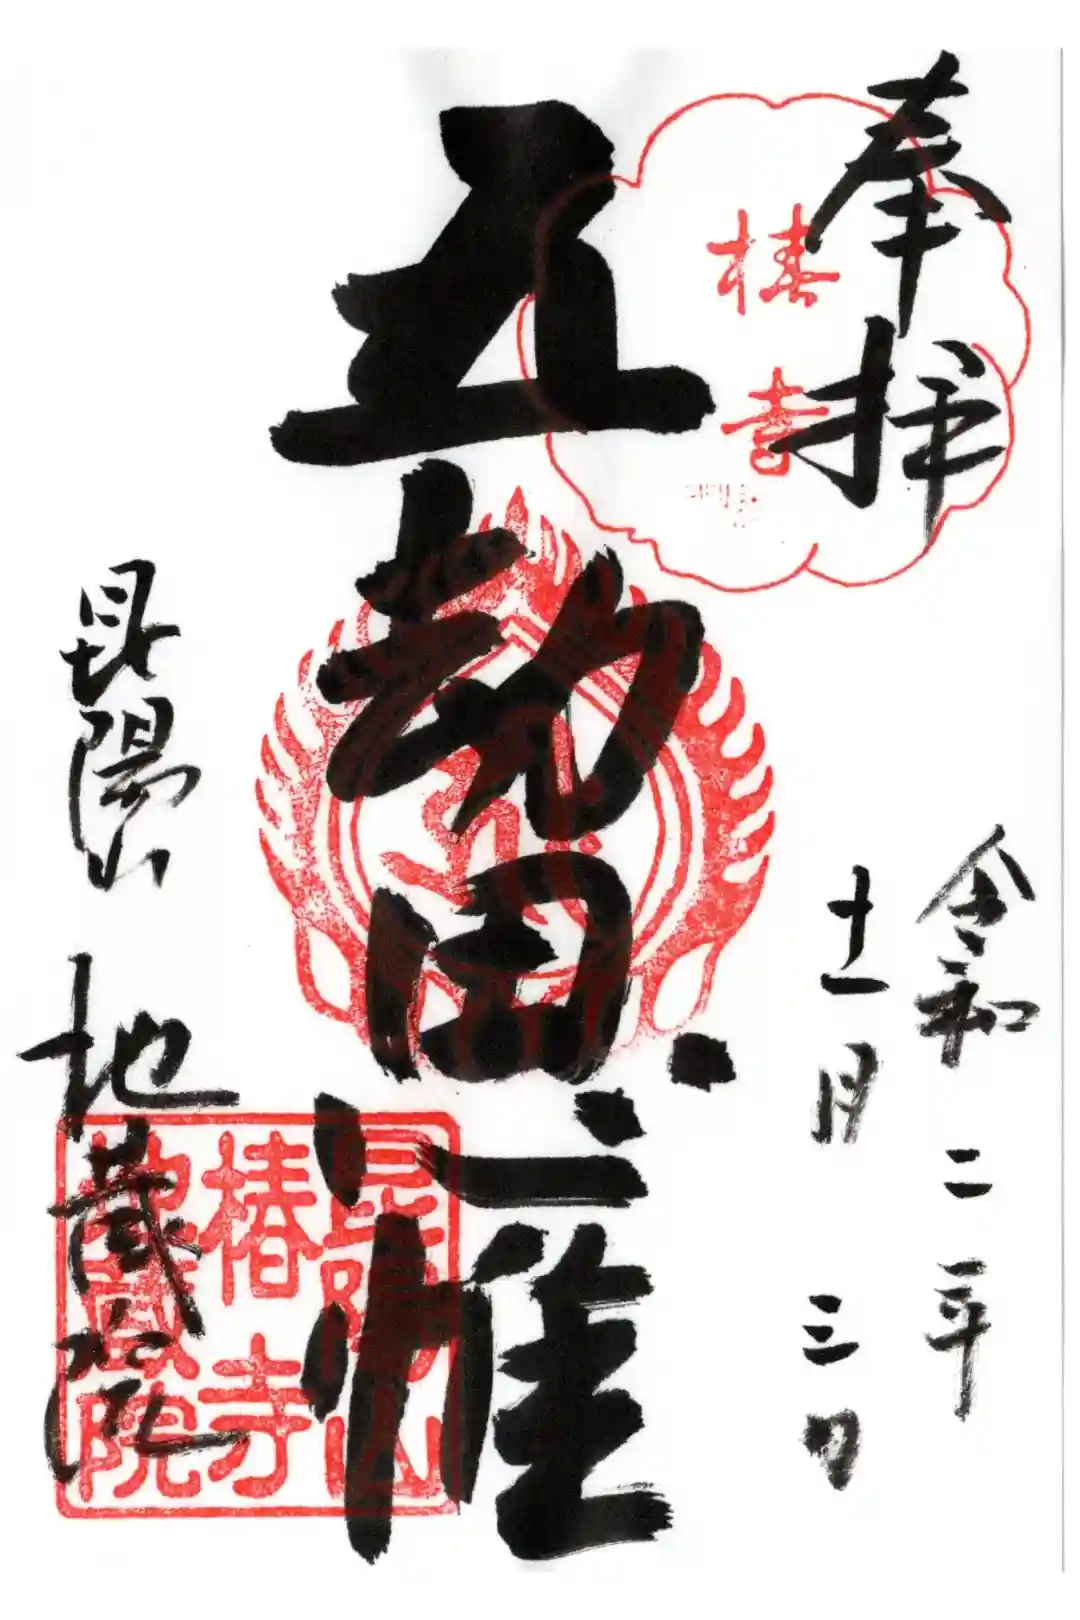 奉拝
椿
寺
令和二年
十一月三日
五劫思惟
昆陽山
地蔵院
昆陽山
椿寺
地蔵院